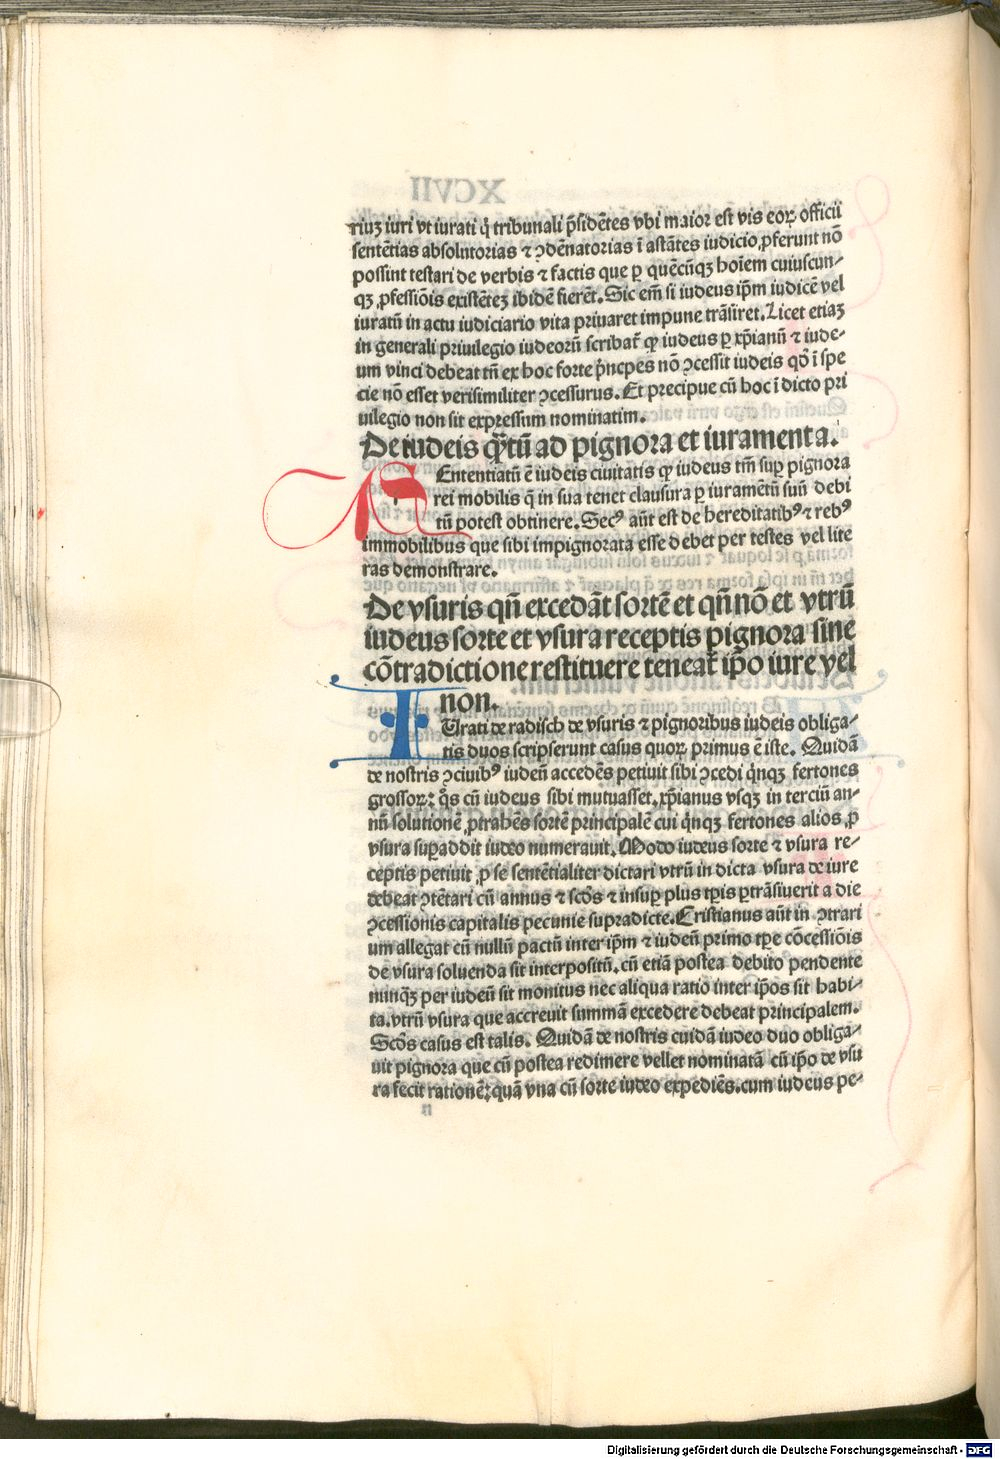 riuꝫ iuri vt iurati q̇ tribunali p̄sidētes vbi maior est vis eoꝝ officii
sentētias absolutorias ⁊ ꝯdēnatorias ī astātes iudicio ꝓferunt nō
possint testari de verbis ⁊ factis que ꝑ quēcūqꝫ hoīem cuiuscun⸗
qꝫ ꝓfessiōis existētez ibidē fierēt. Sic em̄ si iudeus ip̄m iudicē vel
iuratū in actu iudiciario vita priuaret impune trāsiret. Licet etiaꝫ
in generali priuilegio iudeorū scribat̄ ꝙ iudeus ꝑ xp̄ianū ⁊ iude⸗
um vinci debeat tn̄ ex hoc forte pͥncpes nō ꝯcessit iudeis qō ī spe
cie nō esset verisimiliter ꝯcessurus. Et precipue cū hoc ī dicto pri
uilegio non sit expressum nominatim.
De iudeis qͣ̄tū ad pignora et iuramenta.
SEntentiatū ē iudeis ciuitatis ꝙ iudeus tm̄ suꝑ pignora
rei mobilis q̄ in sua tenet clausura ꝑ iuramētū suū debi
tū potest obtinere. Secꝰ aūt est de hereditatibꝰ ⁊ rebꝰ
immobilibus que sibi impignorata esse debet per testes vel lite
ras demonstrare.
De vsuris qn̄ excedāt sortē et qn̄ nō et vtrū
iudeus sorte et vsura receptis pignora sine
cōtradictione restituere teneat̄ ip̄o iure vel
non.
IUrati de radisch de vsuris ⁊ pignoribus iudeis obliga⸗
tis duos scripserunt casus quoꝝ primus ē iste. Quidā
de nostris ꝯciuibꝰ iudeū accedēs petiuit sibi ꝯcedi qͥnqꝫ fertones
grossoꝝ: qͦs cū iudeus sibi mutuasset. xp̄ianus vsqꝫ in terciū an⸗
nū solutionē ꝓtrahēs sortē principalē cui qͥnqꝫ fertones alios ꝓ
vsura suꝑaddit iudeo numerauit. Modo iudeus sorte ⁊ vsura re⸗
ceptis petiuit ꝓ se sentētialiter dictari vtrū in dicta vsura de iure
debeat ꝯtētari cū annus ⁊ scd̄s ⁊ insuꝑ plus tꝑis ꝑtrāsiuerit a die
ꝯcessionis capitalis pecunie supradicte. Cristianus aūt in ꝯtrari
um allegat cū nullū pactū inter ip̄m ⁊ iudeū primo tꝑe cōcessiōis
de vsura soluenda sit interpositū. cū etiā postea debito pendente
nunqꝫ per iudeū sit monitus nec aliqua ratio inter ip̄os sit habi⸗
ta. vtrū vsura que accreuit summā excedere debeat principalem.
Scd̄s casus est talis. Quidā de nostris cuidā iudeo duo obliga⸗
uit pignora que cū postea redimere vellet nominatā cū ip̄o de vsu
ra fecit rationē: quā vna cū sorte iudeo expediēs. cum iudeus pe⸗
Digitalisierung gefördert durch die Deutsche Forschungsgemeinschaft - DFG